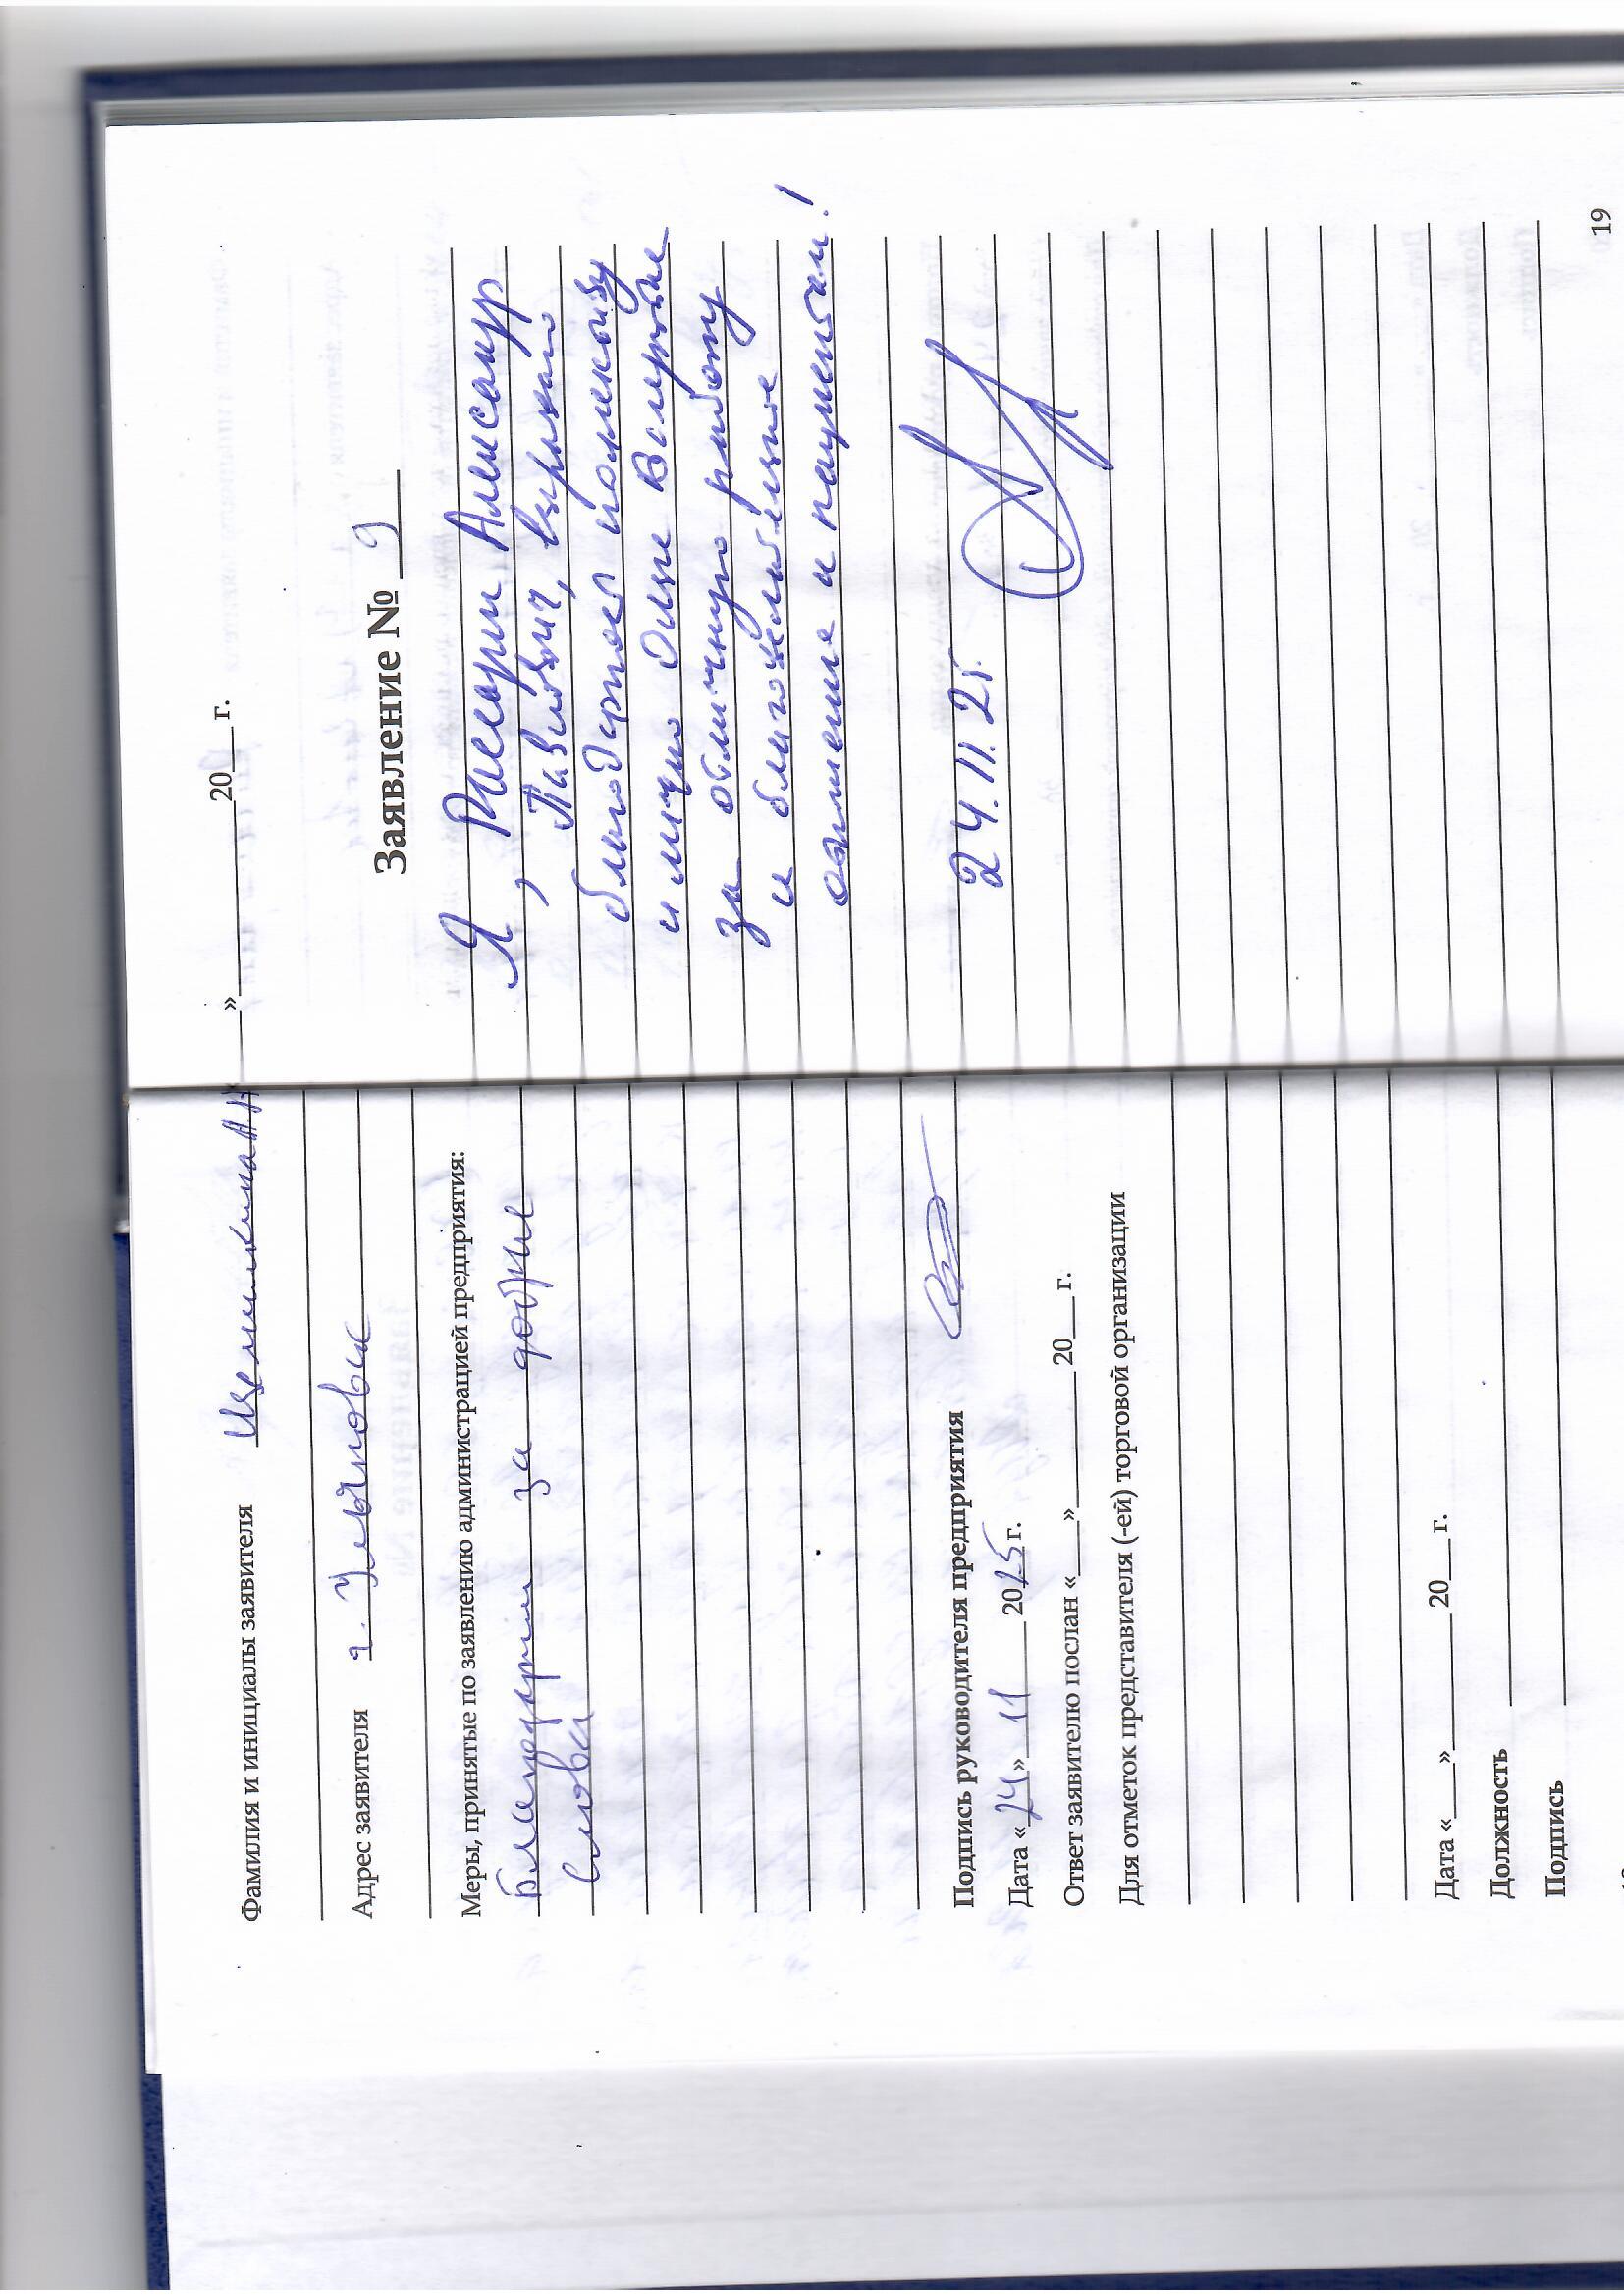 Фамилия и инициалы заявителя
Адрес заявителя г. Ульяновск
Меры, принятые по заявлению администрацией предприятия:
Благодарим за добрые
слова
Подпись руководителя предприятия
Дата «24» 11 2025 г.
Ответ заявителю послан «___»________20__г.
Для отметок представителя (-ей) торговой организации
Дата «___»________20__г.
Должность
Подпись
»________20__г.
Заявление № 9
Я Александр
, Павлович, выражаю
благодарность коллективу
и лично Валерьевне
за отличную работу
и благожелательное
отношение к пациентам!
24.11.25.
19